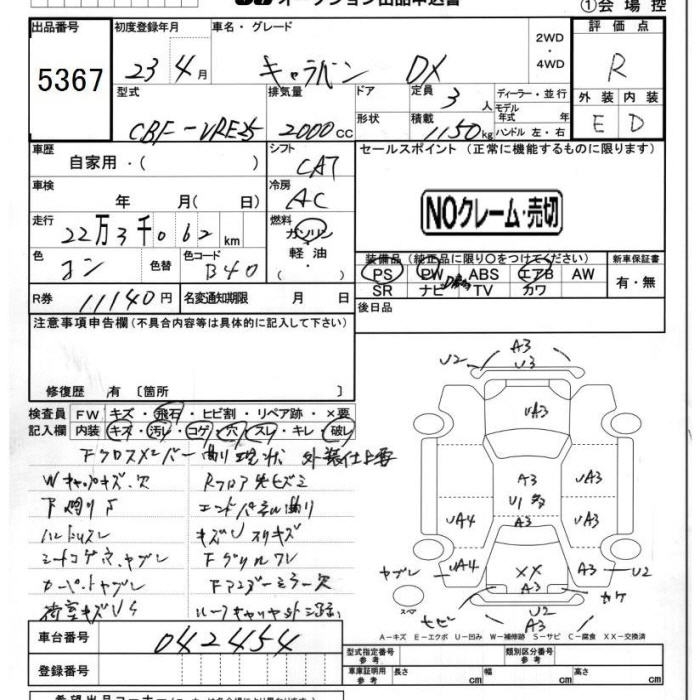 オークション出品申込書
①会 場 控
出品番号
5367
初度登録年月
23年4月
車名・グレード
キャラバン DX
2WD
・
4WD
評 価 点
R
外 装 内 装
E D
型式
CBF-VRE25
排気量
2000cc
ドア
形状
定員 3人
積載 1150kg
ディーラー・並行
モデル年式 年
ハンドル 左・右
車歴
自家用・( )
シフト
CAT
車検
年 月( 日)
冷房
AC
走行
22万3千062km
燃料
ガソリン
軽 油
・
色
コン
色替
色コード
B40
R券 11140円
名変通知期限 月 日
セールスポイント (正常に機能するものに限ります)
NOクレーム・売切
装備品 (純正品に限り○をつけてください)
新車保証書
PS PW ABS エアB AW
SR ナビ TV カワ
有・無
後日品
注意事項申告欄(不具合内容等は具体的に記入して下さい)
修復歴 有 〔箇所 〕
検査員
記入欄
FW キズ・飛石・ヒビ割・リペア跡・×要
内装 キズ・汚レ・コゲ・穴・スレ・キレ・破レ
Fクロスメンバー曲り現状 外装仕上要
Wキャップキズ、欠
下廻りサ
ハンドルスレ
シートコゲ穴、ヤブレ
カーペットヤブレ
荷室キズUサ
エンドパネル曲り
Fグリルワレ
Fアンダーミラー欠
A3
U2
U3
UA3
A3
U1 多
A3
UA3
UA4
UA3
UA4
××
A3
A3
U2
ヤブレ
カケ
スペ
サビ
U2
A3
A－キズ E－エクボ U－凹み W－補修跡 S－サビ C－腐食 XX－交換済
車台番号
042454
登録番号
型式指定番号
参 考
類別区分番号
参 考
車庫証明用
参 考
長さ cm
幅 cm
高さ cm